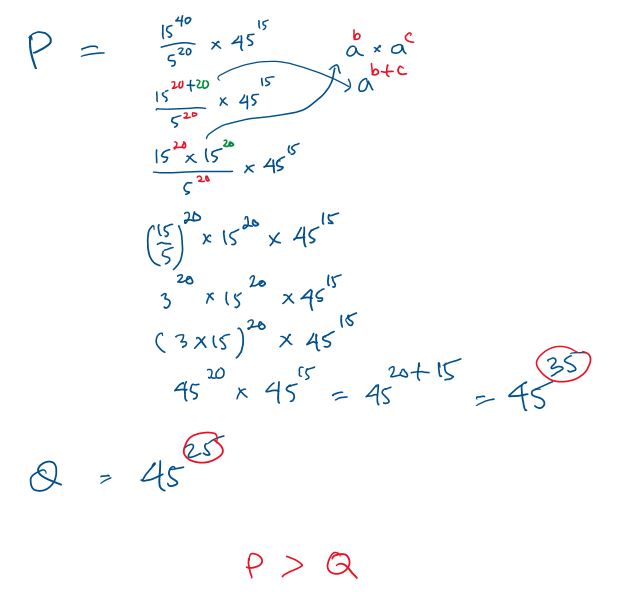 P = 15^40 / 5^20 × 45^15
15^(20+20) / 5^20 × 45^15
a^b × a^c
a^(b+c)
15^20 × 15^20 / 5^20 × 45^15
(15/5)^20 × 15^20 × 45^15
3^20 × 15^20 × 45^15
(3×15)^20 × 45^15
45^20 × 45^15 = 45^(20+15) = 45^35
Q = 45^25
P > Q